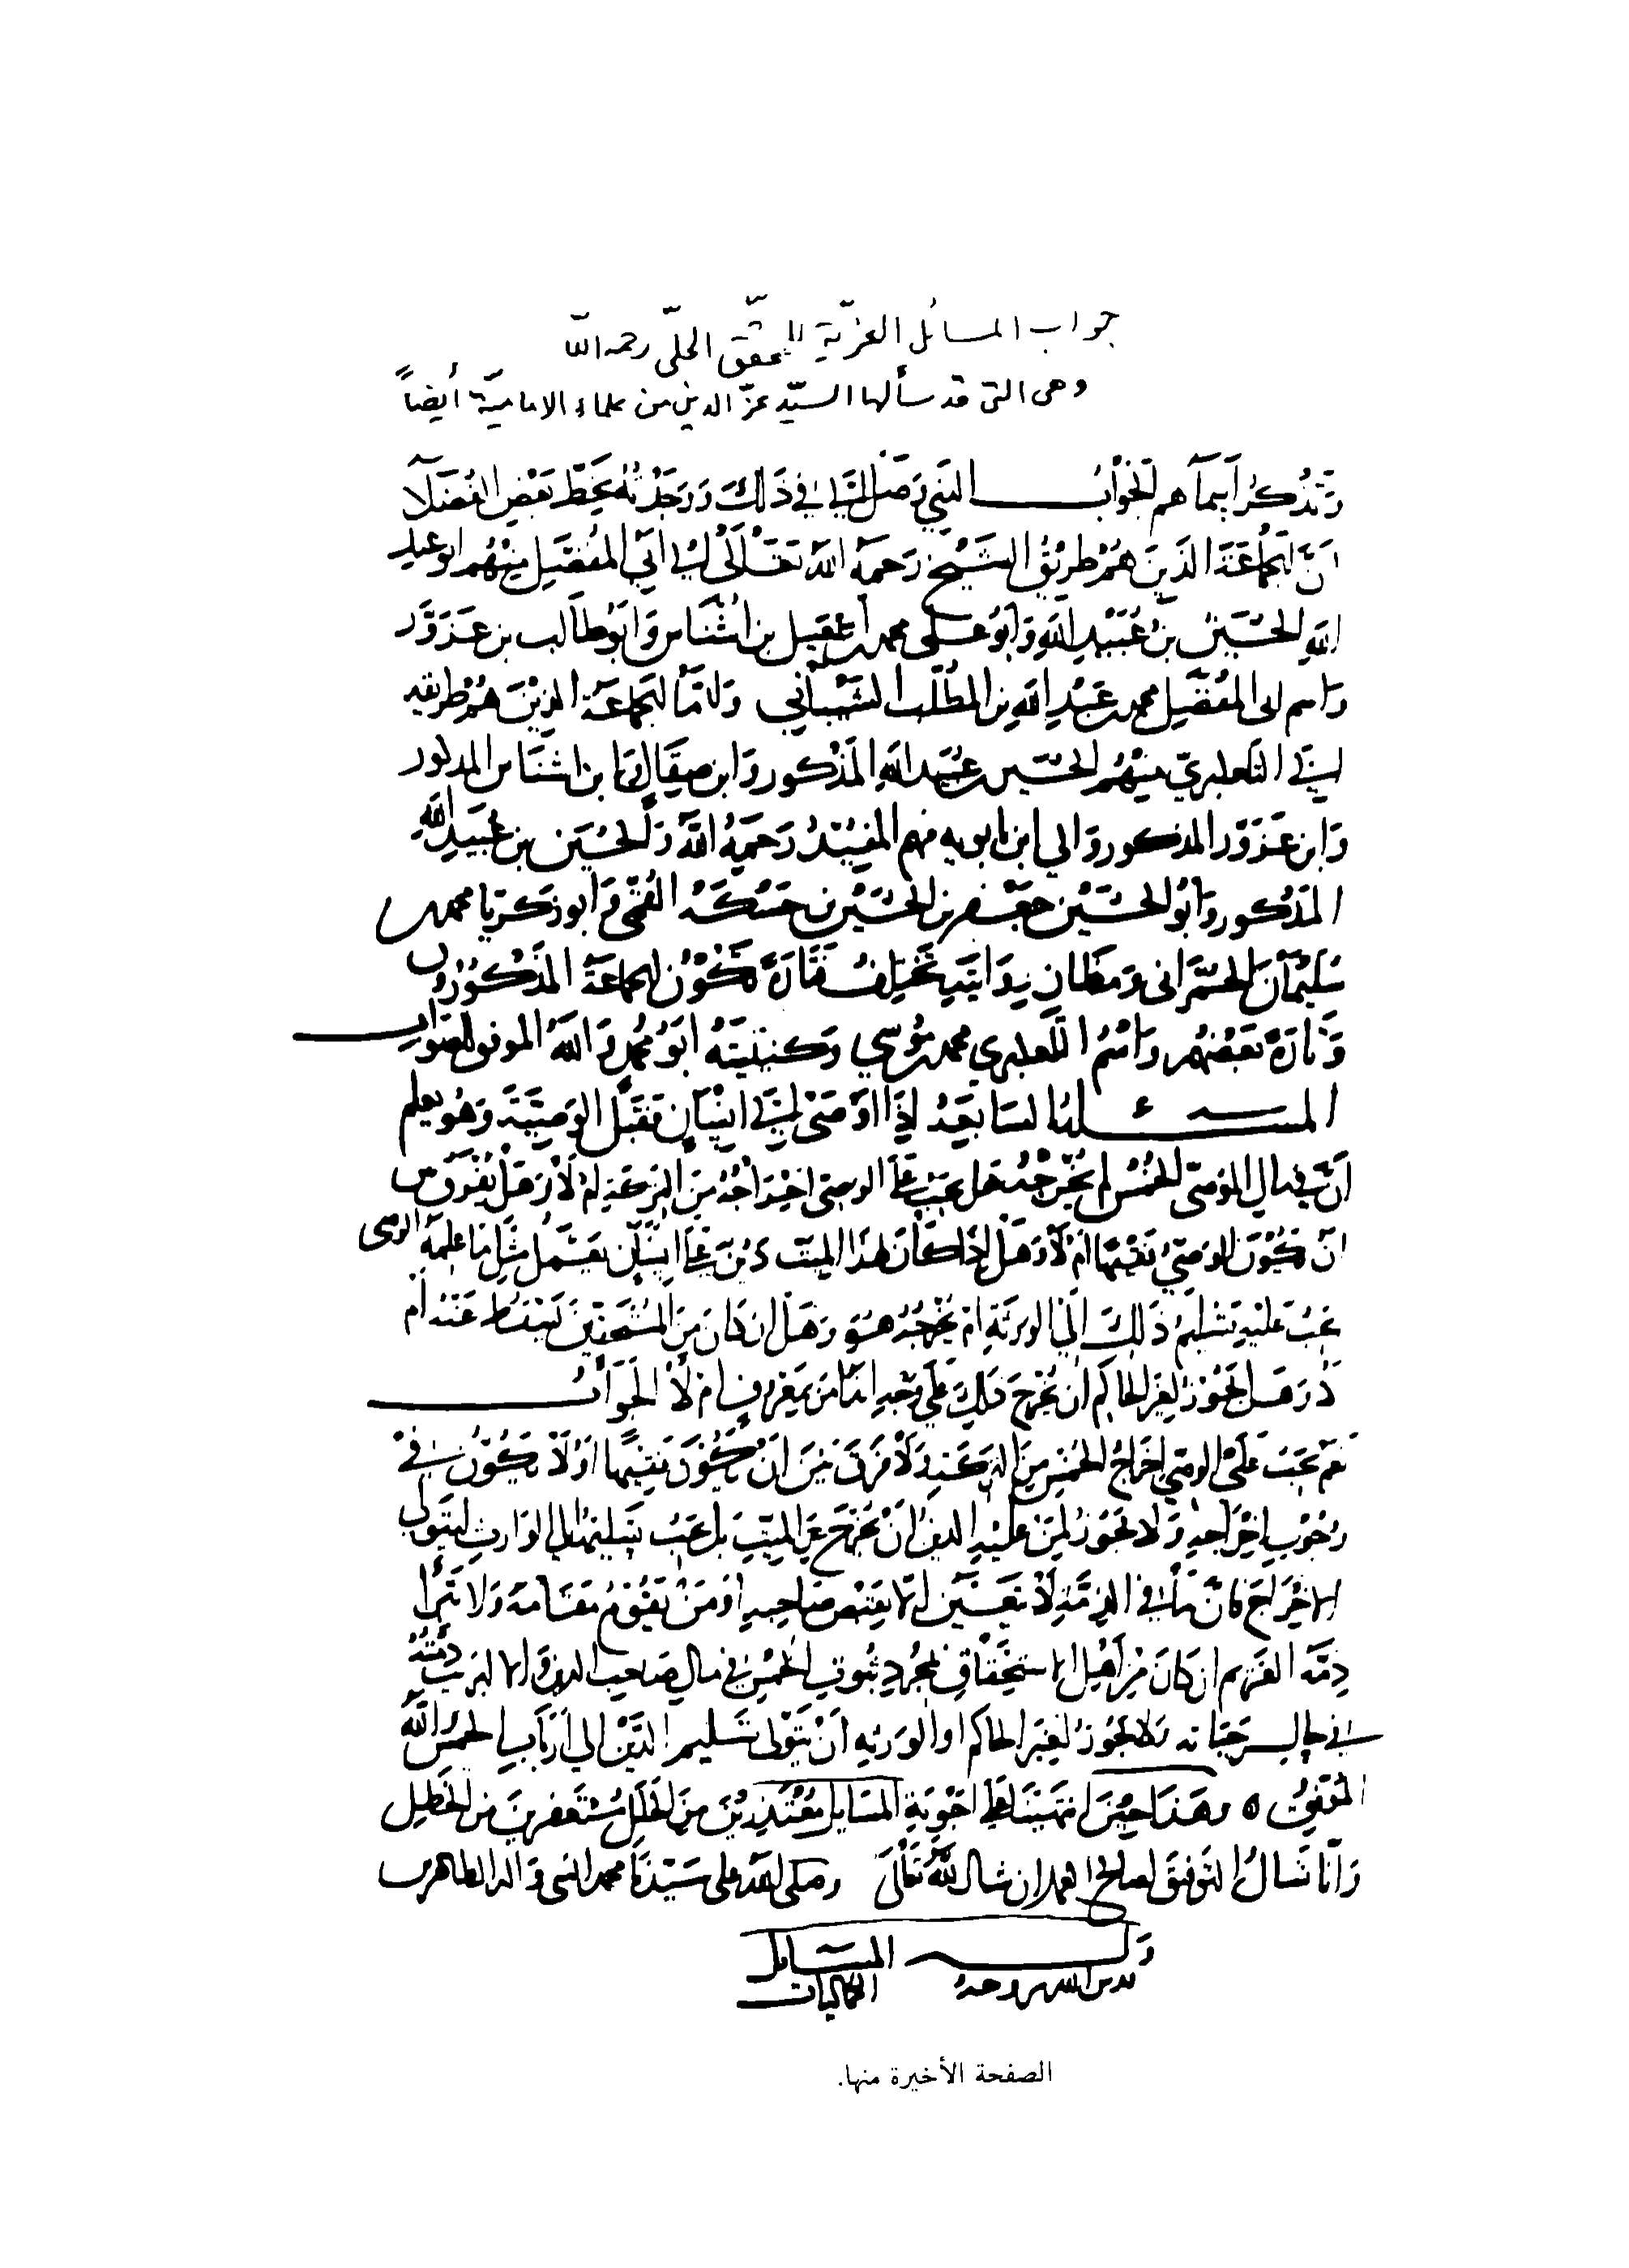 جواب المسائل العزّية للمحقّق الحلّي رحمه الله
وهى التى قد سألها السيّد عزّ الدين من علماء الاماميّة أيضاً
وَنذكُر أسمآهم الجَوَابُ الذي وَصَل إليَّ في ذَلكَ وَوَجَدْتُهُ بخَطّ بَعْضِ الفُضَلآ
اَنَّ الجَمَاعَةَ الذينَ هُمْ طَرِيْقُ الشَيْخِ رَحمَهُ اللهُ تَعَالَى إلى أبي المُفَضَّلِ مِنْهُم ابو عبد
اللهِ الحُسَيْنُ بنُ عُبَيْدِ اللهِ وَابُو عَلى محمد بن اسمعيل بن اشْنَاس وَابُو طَالب بن عَزوَّر
وَاسم ابى المُفَضَّل محمد بن عَبْدِ اللهِ بن المُطَّلب الشَيْبَانِي وَامَّا الجَمَاعَةُ الذِيْنَ هُمْ طريقه
إلى التَلعكبريّ مِنْهُم الحُسَين بن عُبَيْد اللهِ المَذْكور وَابن اشنَاس المذكور
وَابن عَزوَّر المذكور وَالى ابن بابويه منهم المفيْدُ رَحمَهُ اللهُ وَالحُسَين بن عُبَيدِ اللهِ
المَذْكور وَابُو الحُسَيْن جَعْفر بن الحُسَيْن بن حَسَكَهْ القُمّى وَابو زَكَريّا محمد بن
سُلَيْمآنَ الحَمْرَانى وَمظَان رِوَايَتِهِ تَخْتَلِفُ فَتَارَةً يَكُوْنُ الجماعَةُ المَذْكُوْرُون
وَتَارَةً بَعْضُهُم وَاسْمُ التَلعكبري محمد بن مُوسى وَكنيَتهُ ابُو مُحمدٍ وَاللهُ الموفق للصَوَاب
المسئلة السَابعَة إذَا اوْصَى إلى انسَانٍ فَقَبلَ الوَصِيَّةَ وَهُو يعلم
اَنَّ في مال المُوصى الخُمْسَ لم يُخْرجْهُ هَل يَجبُ عَلَى الوصى اخْرَاجُهُ مِنَ التَركَةِ امْ لَا وَهَلْ يُفْرَق بين
انْ يكُوْنَ الوَصيُّ فَقِيْهًا امْ لَا وَهَلْ إذَا كَانَ لهذَا الميّت دَيْن عَلَى انسَانٍ يَعْلَمُ مِثْل مَا علِمَهُ الوصى
يَجبُ عَليْهِ تسْليمُ ذَلكَ إلَى الورثَةِ امْ يُخْرِجُهُ هُوَ وَهَلْ ان كَانَ مِنَ المُسْتَحِقّينَ يَسْقُطُ عَنْهُ أمْ
لا وَهَل يَجُوْزُ لِغَيْر الحَاكِم ان يُخْرِجَ ذَلِكَ عَلَى وَجْهٍ امْ لَا الجَوَابُ
نَعَمْ يَجبُ عَلَى الوصى إخْرَاجُ الخُمْسِ مِنَ التَركَةِ وَلَا فَرْقَ بَيْنَ انْ يَكُوْنَ فَقِيْهًا اَوْ لَا يَكُوْنُ في
وُجُوْبِ اِخْرَاجِهِ وَلا يَجُوزُ لِمَنْ عَلَيْهِ الدينُ انْ يُخْرِجَ عَن المَيِّتِ بل يَجبُ تَسْليمُهُ إلى الوَارِثِ ليَتَوَلى
الاخْرَاجَ فَانَّ مَا في الذِمَّةِ لَا يَتَعَيَّن إلّا بِقَبْضِ صَاحِبِهِ اوْ مَنْ يَقُوْمُ مَقَامَهُ وَلا تَبْرأ
ذِمَّة الغَرِيم ان كَانَ مِنْ أهْل الاستِحْقَاقِ بمجُرَدِ ثُبُوتِ الخُمْسِ في مَالِ صَاحِبِ الدين وَالا لبَرئت ذِمَّتُهُ
في حَال حَيَاته وَلا يَجُوزُ لِغَيْر الحاكم او الورَثهِ اَنْ يَتَوَلى تَسْليم الدَيْن إلى اَرْبَابِ الخُمسِ وَاللهُ
المُوَفِّقُ ٥ وهَذَا حِيْنَ انتَهَيْنَا إلى اَجْوِبَةِ المَسَايِل مُعْتَذِرِيْنَ مِنَ الخَلَل مُسْتَغفرينَ من الخَطَل
وَانَّا نَسَالُ التَوفيقَ لصَالح العمل ان شاء اللهُ تَعَالَى وصَلى اللهُ على سَيّدنَا محمد النبى وَاله الطاهرين
وَلَه المسَايل
قدس الله روحه الكماليات
الصفحة الأخيرة منها.